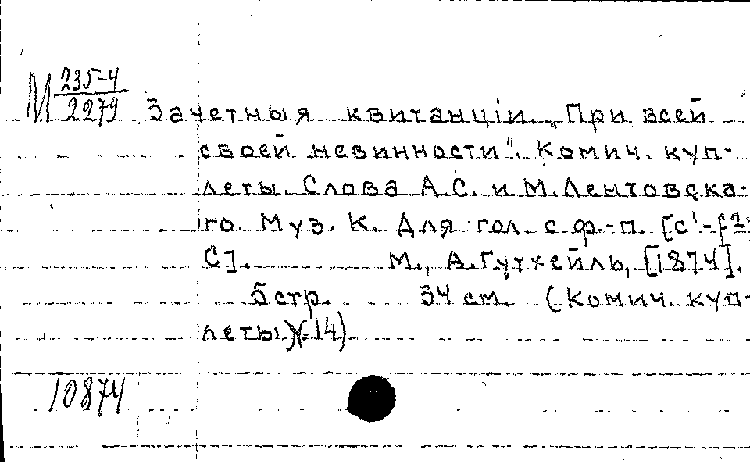 М 235-4
2279
Зачетныя квитанціи. „При всей
своей невинности". Комич. куп-
леты. Слова А.С. и М.Лентовска-
го. Муз. К. Для гол. с ф.-п. [c'-f2;
C]. М., А.Гутхейль, [1874].
5 стр. 34 см. (Комич. куп-
леты.)(-14)
10874